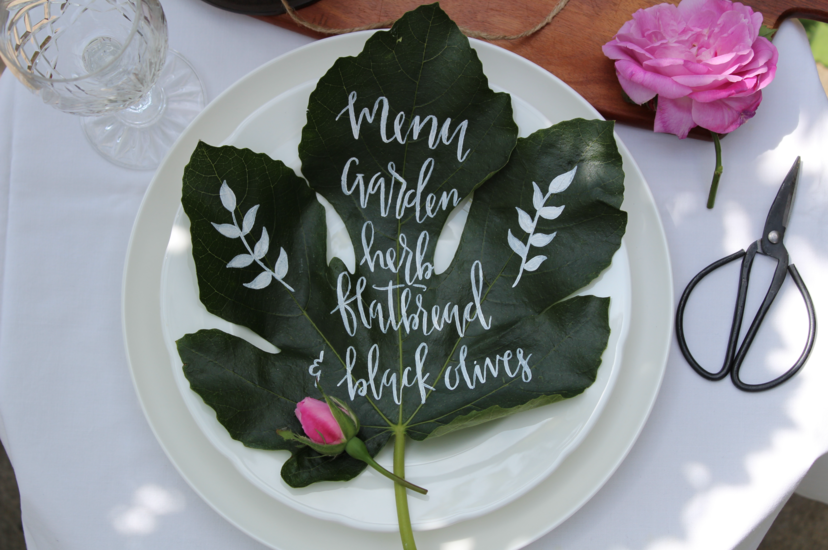 Menu
Garden
herb
flatbread
& black olives